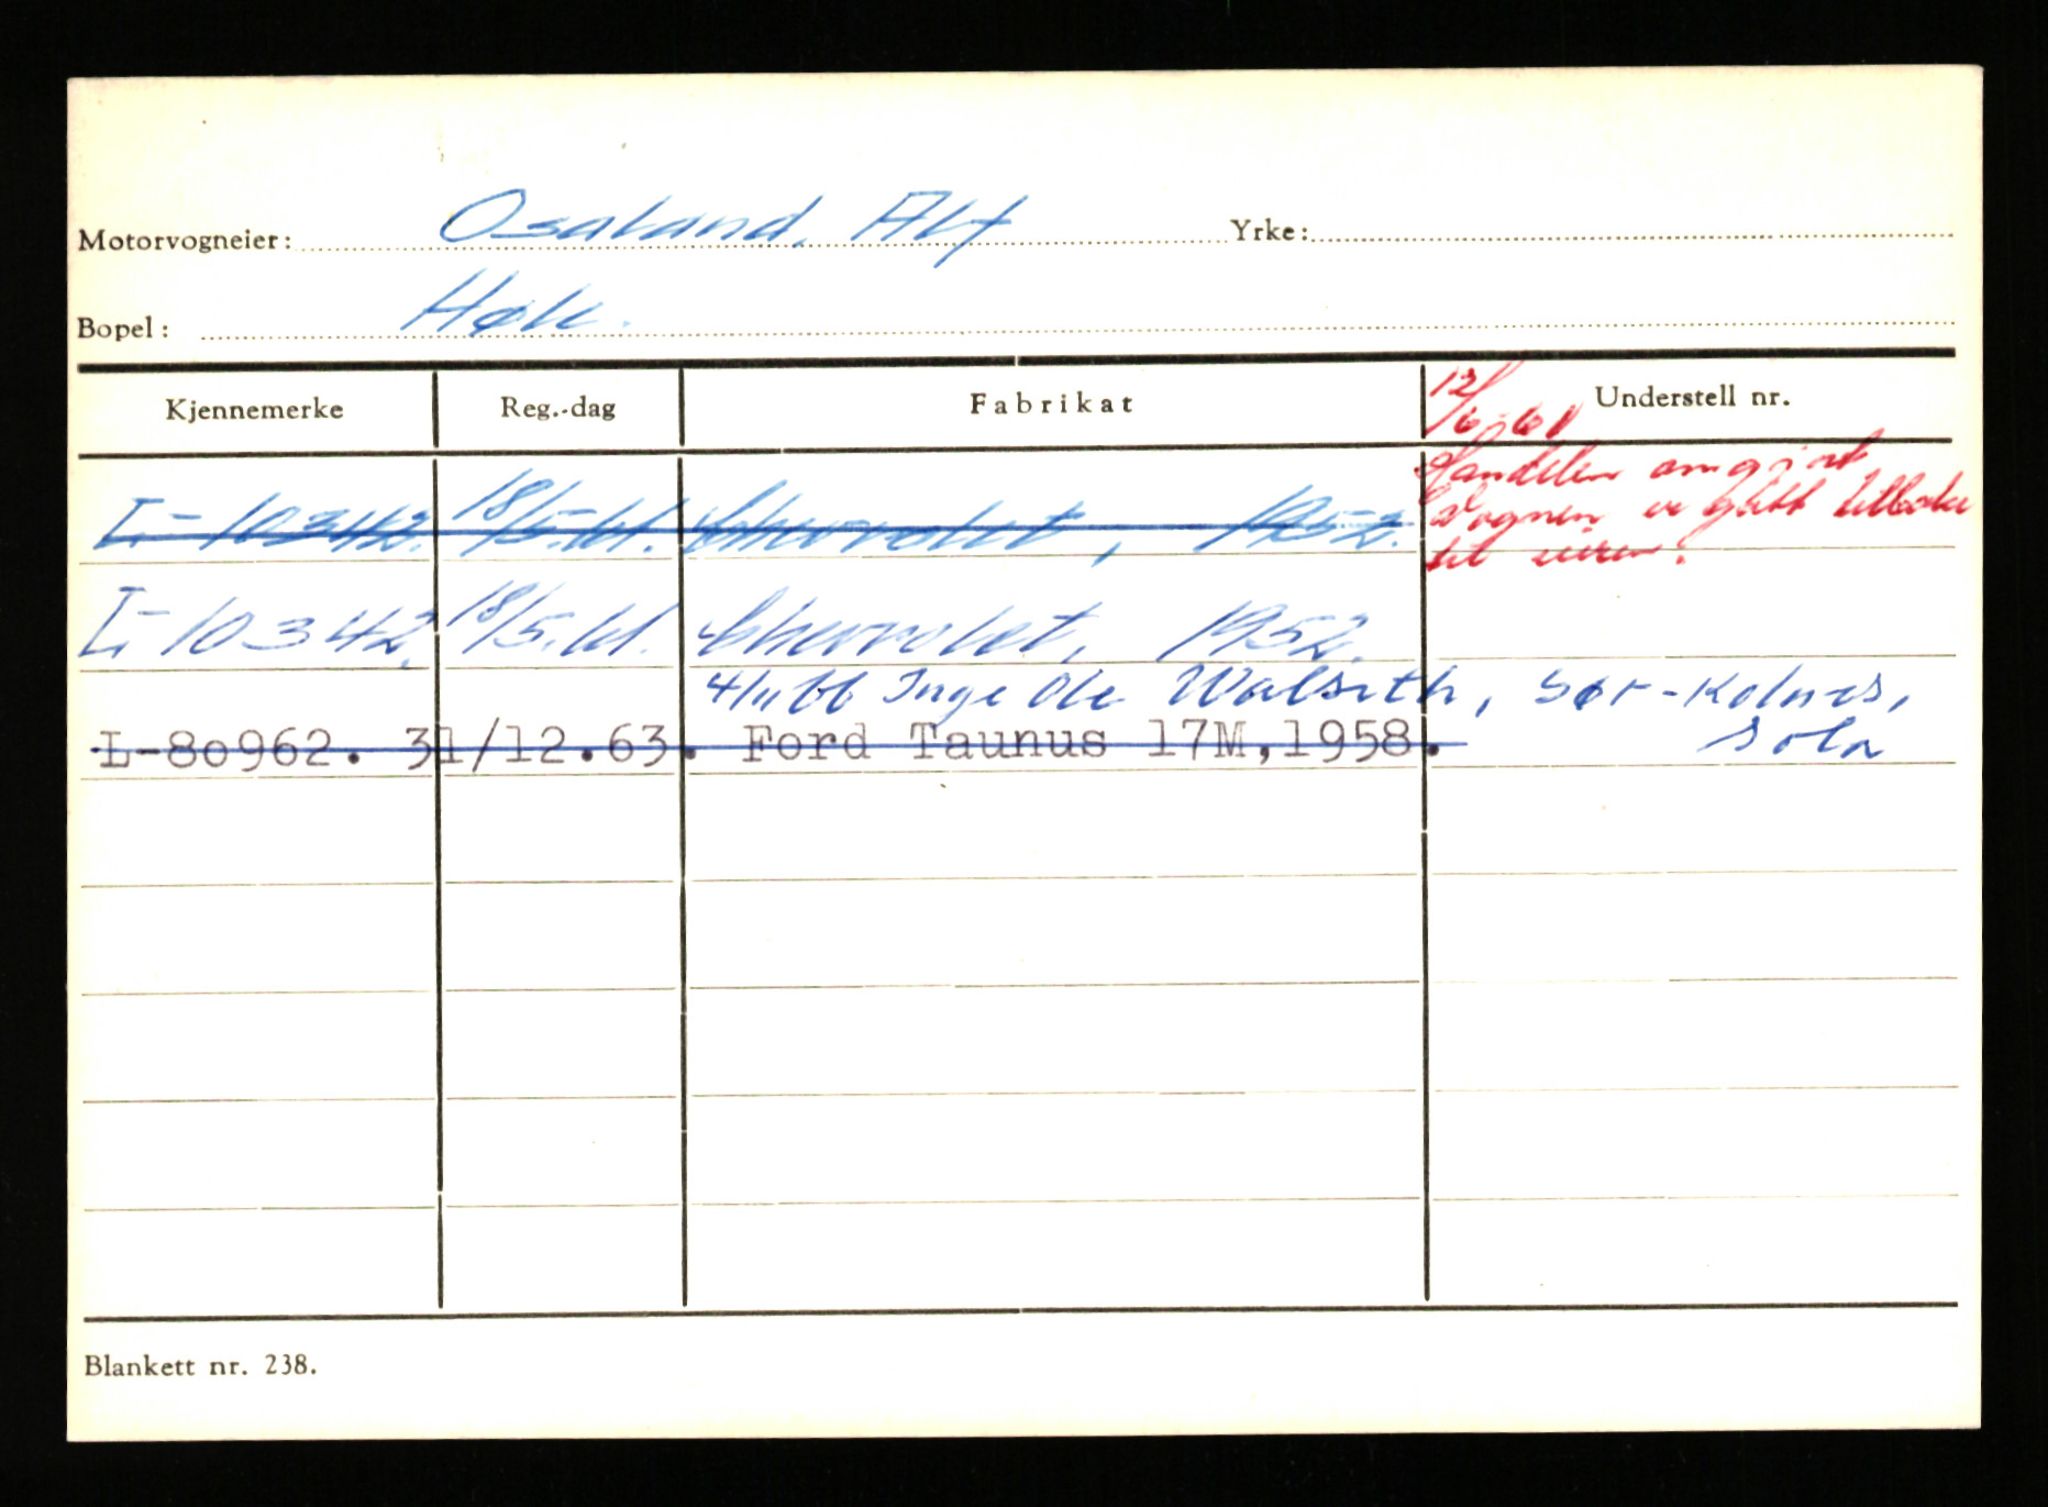 Motorvogneier: Osaland, Alf Yrke:
Bopel: Høle.
Kjennemerke Reg.-dag Fabrikat Understell nr.
12/6-61
Handelen omgjort
Vognen er gått tilbake
til eieren.
L-10342. 18/5.61. Chevrolet, 1952.
L-10342. 18/5.61. Chevrolet, 1952.
4/11 66 Inge Ole Walseth, Sør-Kolnes,
Sola
L-80962. 31/12.63. Ford Taunus 17M,1958.
Blankett nr. 238.